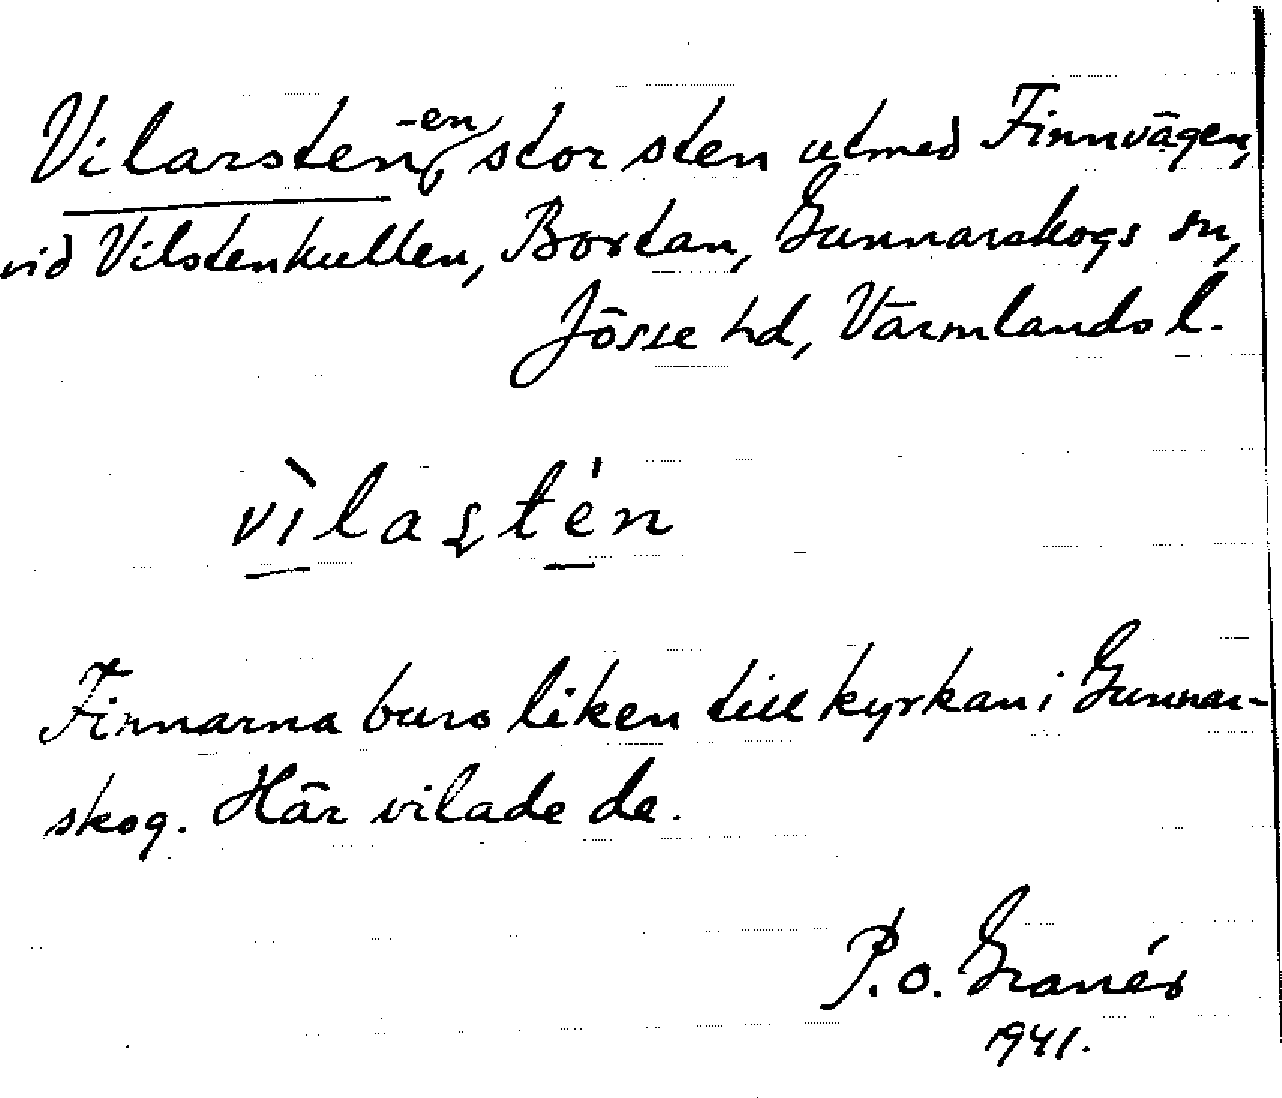 Vilarsten, -en stor sten utmed Finnvägen,
vid Vilstenkullen, Bortan, Gunnarskogs sn,
Jösse hd, Värmlands l.
vìlasté̀n
Finnarna buro liken till kyrkan i Gunnar-
skog. Här vilade de.
P. o. Granér
1941.